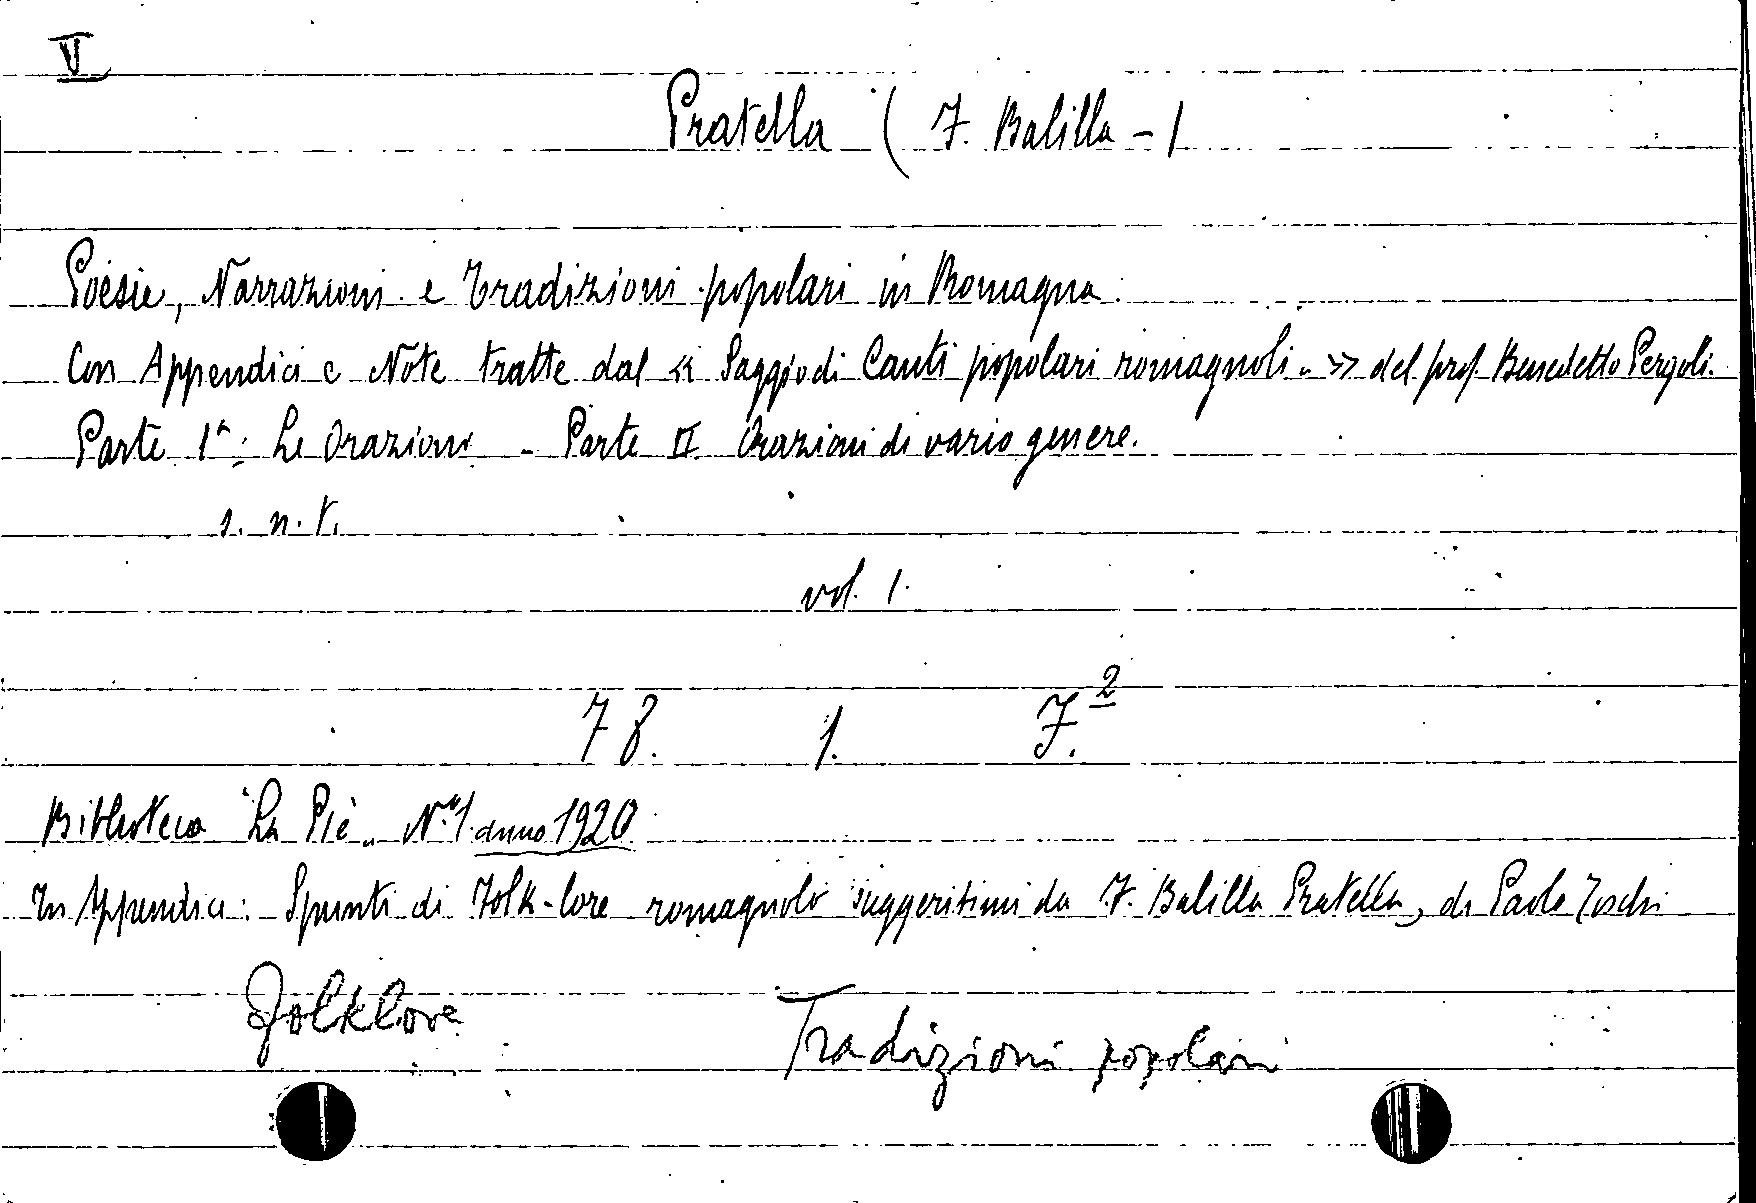 V
Pratella ( F. Balilla - )
Poesie, Narrazioni e Tradizioni popolari in Romagna.
Con Appendici e Note tratte dal « Saggio di Canti popolari romagnoli. » del prof. Benedetto Pergoli.
Parte 1ª: Le Orazioni - Parte II Orazioni di vario genere.
s. n. t.
vol. 1.
78. 1. F.2
Biblioteca "La Piè„ N.° 1. anno 1920
In Appendice: Spunti di Folk-lore romagnolo suggeritimi da F. Balilla Pratella, di Paolo Toschi
Folklore
Tradizioni popolari